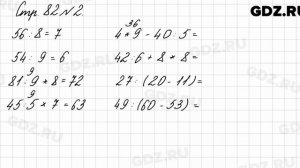 GDZ.RU
Стр. 82 № 2.
56 : 8 = 7
54 : 9 = 6
9
81 : 9 * 8 = 72
9
45 : 5 * 7 = 63
36
4 * 9 - 40 : 5 =
42 : 6 + 8 * 8 =
27 : (20 - 11) =
49 : (60 - 53) =
GDZ.RU